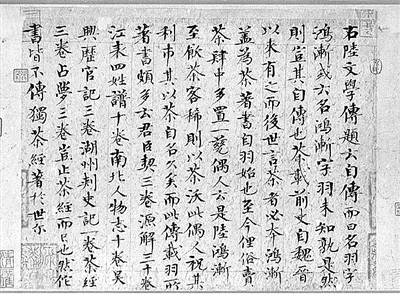 右陸文學傳題云自傳而曰名羽字
鴻漸或云名鴻漸字羽未知孰是然
則豈其自傳也茶載前史自魏晉
以来有之而後世言茶者必本鴻漸
蓋為茶著書自羽始也至今俚俗賣
茶肆中多置一甆偶人云是陸鴻漸
至飲茶客稀則以茶沃此偶人祝其
利市其以茶自名久矣而此傳載羽所
著書頗多云君臣契三卷源解三十卷
江表四姓譜十卷南北人物志十卷吳
興歷官記三卷湖州刺史記一卷茶經
三卷占夢三卷豈止茶經而已也然佗
書皆不傳獨茶經著於世尔